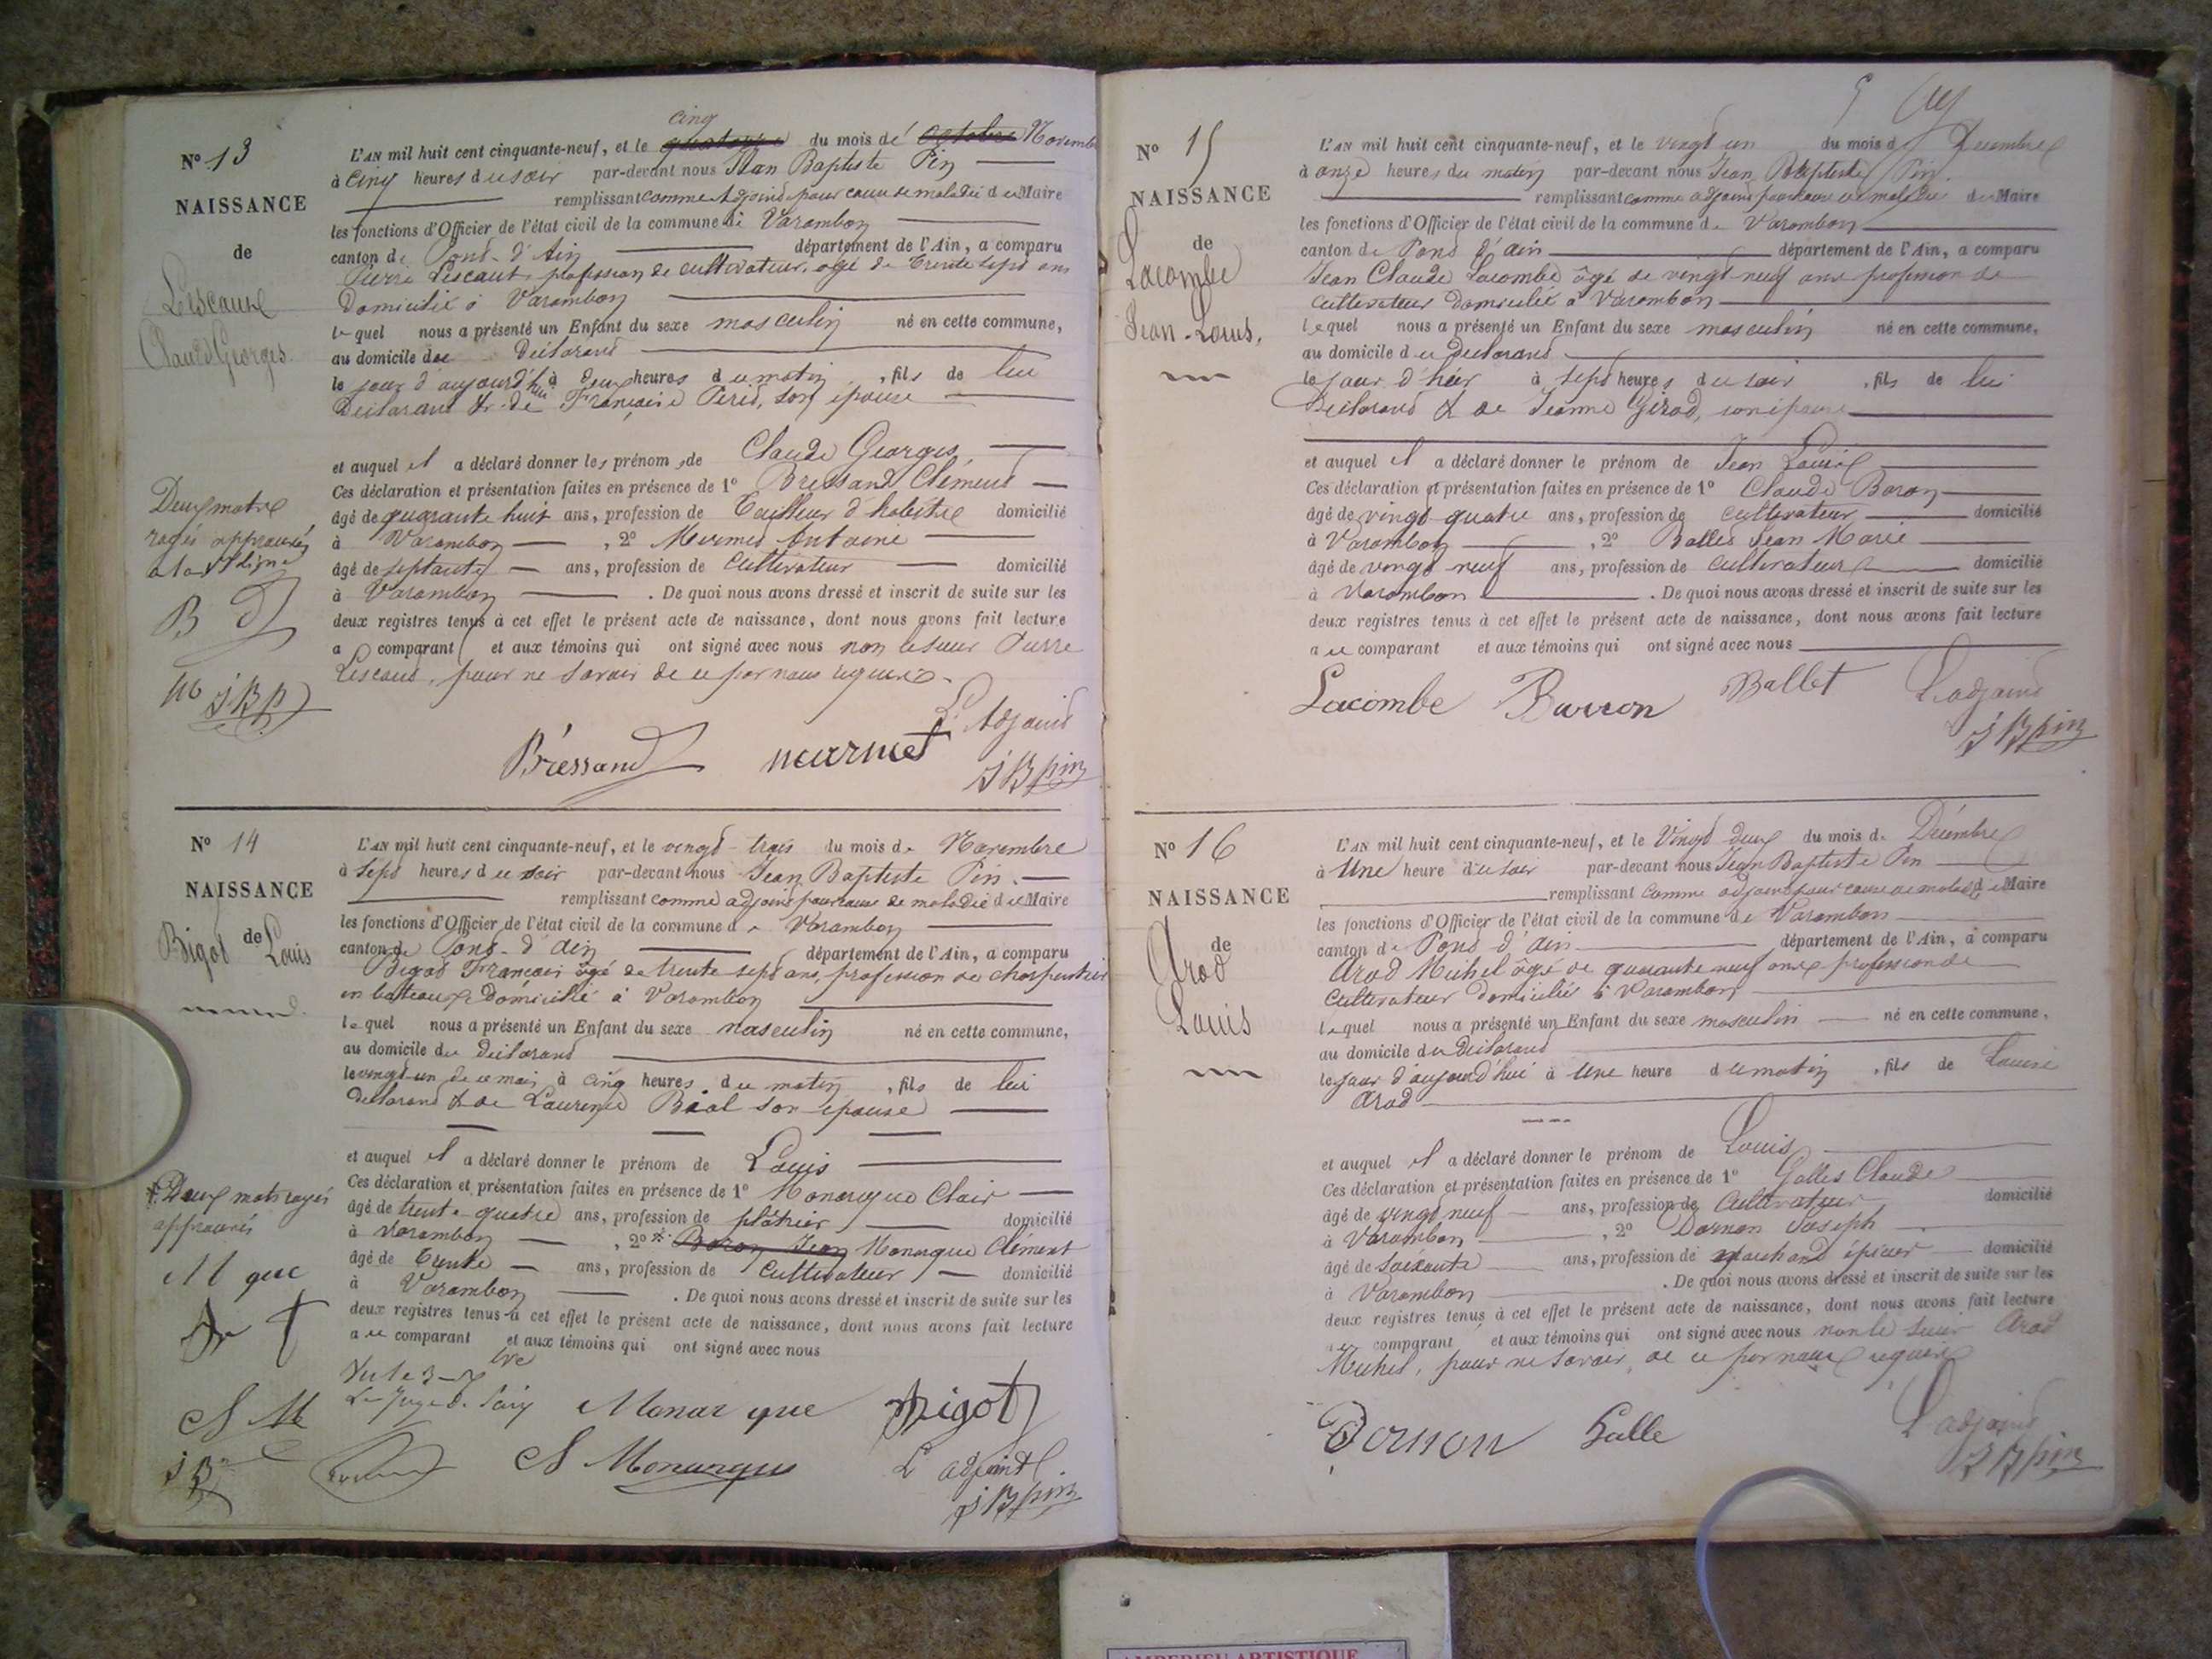 cinq
N° 13
L'AN mil huit cent cinquante-neuf, et le quatorze du mois de octobre Novembre
à cinq heures du soir par-devant nous Jean Baptiste Pin
NAISSANCE
remplissant comme Adjoint pour cause de maladie du Maire
les fonctions d'Officier de l'état civil de la commune de Varambon
de
canton de Pont-d'Ain département de l'Ain, a comparu
Pierre Lescaut, profession de cultivateur, âgé de Trente sept ans
Domicilié à Varambon
Claude Georges
lequel nous a présenté un Enfant du sexe masculin né en cette commune,
au domicile du Déclarant
le jour d'aujourd'hui à deux heures du matin, fils de lui
Déclarant & de Françoise son épouse
et auquel il a déclaré donner les prénoms de Claude Georges
Ces déclaration et présentation faites en présence de 1° Bressand Clément
âgé de quarante huit ans, profession de Tailleur d'habits domicilié
à Varambon, 2° Mermet Antoine
âgé de septante ans, profession de Cultivateur domicilié
à Varambon. De quoi nous avons dressé et inscrit de suite sur les
deux registres tenus à cet effet le présent acte de naissance, dont nous avons fait lecture
a comparant et aux témoins qui ont signé avec nous non le sieur Pierre
Lescaut, pour ne savoir de ce par nous requis.
Deux mots
rayés approuvés
B d
JBP
L'Adjoint
Bressand mermet
JB pin
N° 14
L'AN mil huit cent cinquante-neuf, et le vingt-trois du mois de Novembre
à sept heures du soir par-devant nous Jean Baptiste Pin.
NAISSANCE
remplissant comme adjoint pour cause de maladie du Maire
les fonctions d'Officier de l'état civil de la commune de Varambon
de
Bigot Louis
canton de Pont-d'Ain département de l'Ain, a comparu
Bigot François âgé de trente sept ans, profession de charpentier
en bateaux Domicilié à Varambon
lequel nous a présenté un Enfant du sexe masculin né en cette commune,
au domicile du déclarant
le vingt-un de ce mois à cinq heures du matin, fils de lui
déclarant & de Laurence son épouse
et auquel il a déclaré donner le prénom de Louis
Ces déclaration et présentation faites en présence de 1° Monarque Clair
âgé de trente-quatre ans, profession de plâtrier domicilié
à Varambon, 2° Baron Jean Monarque Clément
âgé de trente ans, profession de Cultivateur domicilié
à Varambon. De quoi nous avons dressé et inscrit de suite sur les
deux registres tenus à cet effet le présent acte de naissance, dont nous avons fait lecture
au comparant et aux témoins qui ont signé avec nous
Deux mots rayés
approuvés
M que
Le Juge de Paix
Monarque Bigot
Monarque
L'adjoint
JB pin
N° 15
L'AN mil huit cent cinquante-neuf, et le vingt un du mois de Decembre
à onze heures du matin par-devant nous Jean Baptiste Pin.
NAISSANCE
remplissant comme adjoint pour cause de maladie du Maire
les fonctions d'Officier de l'état civil de la commune de Varambon
de
Lacombe
Jean-Louis.
canton de Pont d'ain département de l'Ain, a comparu
Jean Claude Lacombe âgé de vingt neuf ans profession de
cultivateur domicilié à Varambon
lequel nous a présenté un Enfant du sexe masculin né en cette commune,
au domicile du déclarant
le jour d'hier à sept heures du soir, fils de lui
Déclarant & de Jeanne Girod, son épouse
et auquel il a déclaré donner le prénom de Jean Louis
Ces déclaration et présentation faites en présence de 1° Claude Baron
âgé de vingt quatre ans, profession de cultivateur domicilié
à Varambon, 2° Ballet Jean Marie
âgé de vingt neuf ans, profession de cultivateur domicilié
à Varambon. De quoi nous avons dressé et inscrit de suite sur les
deux registres tenus à cet effet le présent acte de naissance, dont nous avons fait lecture
au comparant et aux témoins qui ont signé avec nous
Lacombe Barron Ballet L'adjoint
JB pin
N° 16
L'AN mil huit cent cinquante-neuf, et le Vingt deux du mois de Décembre
à Une heure du soir par-devant nous Jean Baptiste Pin
NAISSANCE
remplissant comme adjoint pour cause de maladie du Maire
les fonctions d'Officier de l'état civil de la commune de Varambon
de
Arod
Louis
canton de Pont d'ain département de l'Ain, a comparu
Arod Michel âgé de quarante neuf ans profession de
Cultivateur domicilié à Varambon
lequel nous a présenté un Enfant du sexe masculin né en cette commune,
au domicile du Déclarant
le jour d'aujourd'hui à Une heure du matin, fils de Louise
Arod
et auquel il a déclaré donner le prénom de Louis
Ces déclaration et présentation faites en présence de 1° Galles Claude
âgé de vingt neuf ans, profession de Cultivateur domicilié
à Varambon, 2° Dornon Joseph
âgé de soixante ans, profession de marchand épicier domicilié
à Varambon. De quoi nous avons dressé et inscrit de suite sur les
deux registres tenus à cet effet le présent acte de naissance, dont nous avons fait lecture
au comparant et aux témoins qui ont signé avec nous non le sieur Arod
Michel, pour ne savoir, de ce par nous requis
Dornon Galle L'adjoint
JB pin
AMBERIEU ARTISTIQUE